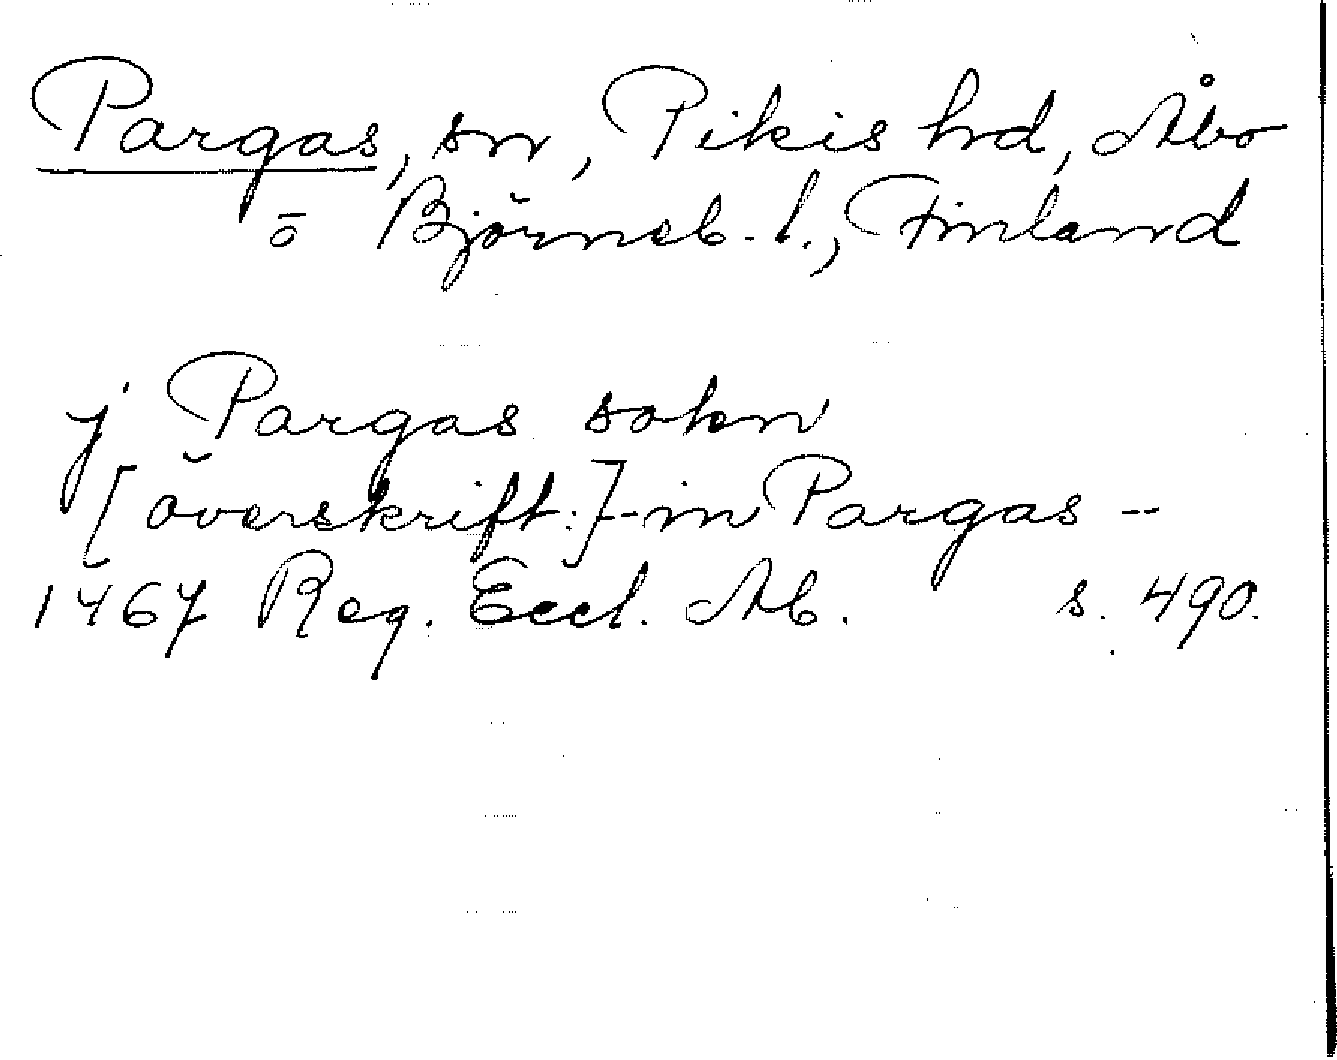 Pargas, sn, Pikis hd, Åbo
o Björneb. l., Finland
j Pargas sokn
[överskrift:] - in Pargas --
1467 Reg. Eccl. Ab. s. 490.